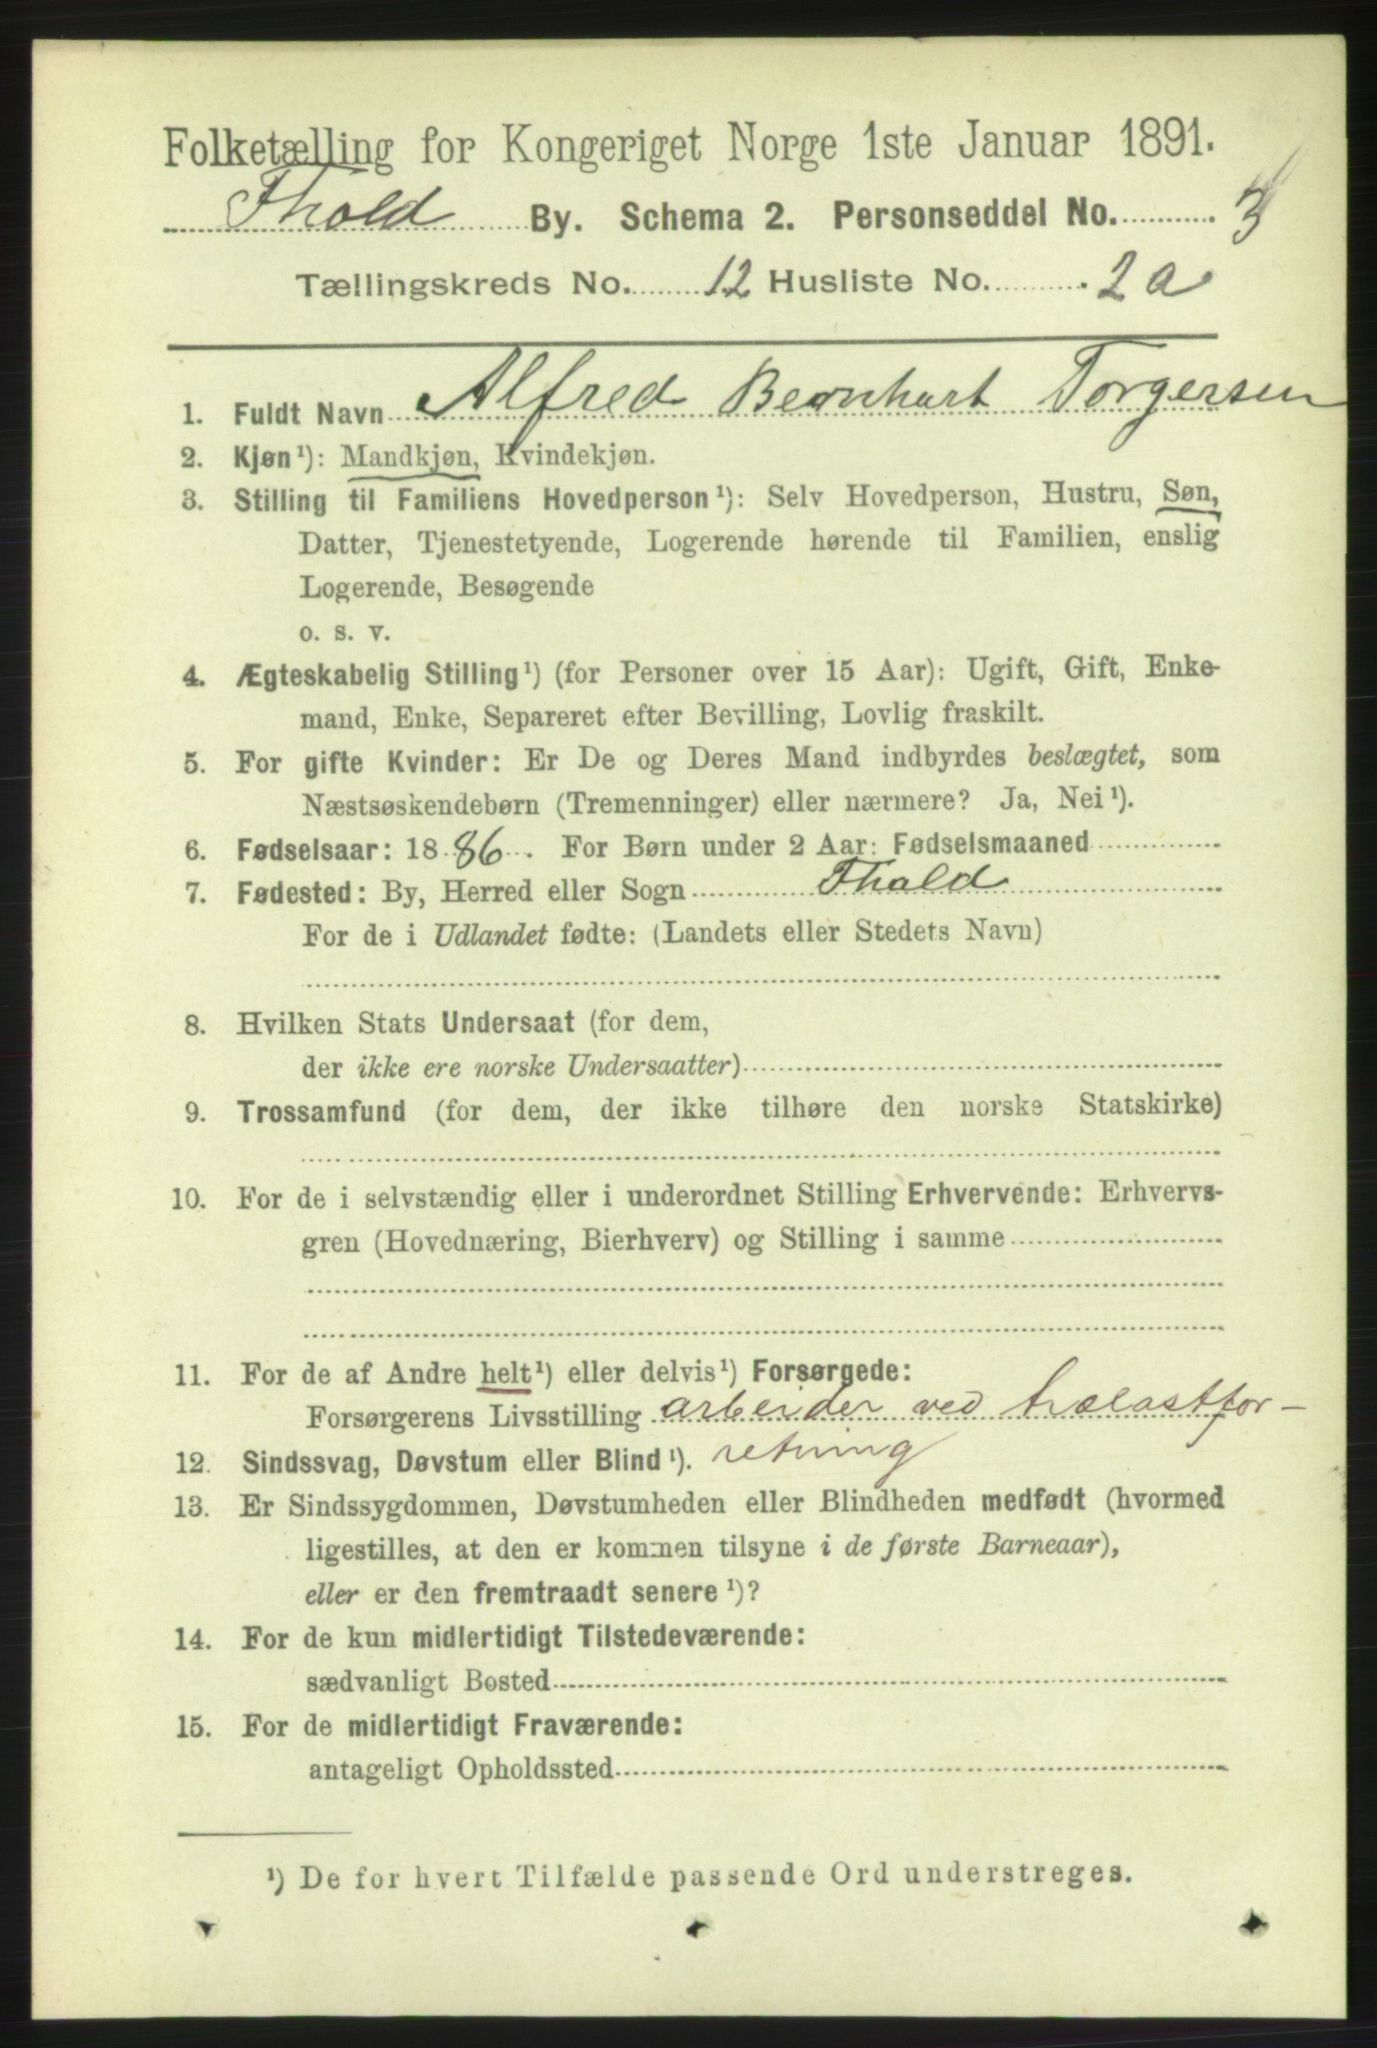 Folketælling for Kongeriget Norge 1ste Januar 1891.
Fhald By. Schema 2. Personseddel No. 3
Tællingskreds No. 12 Husliste No. 2a
1. Fuldt Navn Alfred Bernhart Torgersen
2. Kjøn¹): Mandkjøn, Kvindekjøn.
3. Stilling til Familiens Hovedperson¹): Selv Hovedperson, Hustru, Søn,
Datter, Tjenestetyende, Logerende hørende til Familien, enslig
Logerende, Besøgende
o. s. v.
4. Ægteskabelig Stilling¹) (for Personer over 15 Aar): Ugift, Gift, Enke-
mand, Enke, Separeret efter Bevilling, Lovlig fraskilt.
5. For gifte Kvinder: Er De og Deres Mand indbyrdes beslægtet, som
Næstsøskendebørn (Tremenninger) eller nærmere? Ja, Nei¹).
6. Fødselsaar: 1886. For Børn under 2 Aar: Fødselsmaaned
7. Fødested: By, Herred eller Sogn Fhald
For de i Udlandet fødte: (Landets eller Stedets Navn)
8. Hvilken Stats Undersaat (for dem,
der ikke ere norske Undersaatter)
9. Trossamfund (for dem, der ikke tilhøre den norske Statskirke)
10. For de i selvstændig eller i underordnet Stilling Erhvervende: Erhvervs-
gren (Hovednæring, Bierhverv) og Stilling i samme
11. For de af Andre helt¹) eller delvis¹) Forsørgede:
Forsørgerens Livsstilling arbeider ved trælastfor-
12. Sindssvag, Døvstum eller Blind¹). retning
13. Er Sindssygdommen, Døvstumheden eller Blindheden medfødt (hvormed
ligestilles, at den er kommen tilsyne i de første Barneaar),
eller er den fremtraadt senere¹)?
14. For de kun midlertidigt Tilstedeværende:
sædvanligt Bosted
15. For de midlertidigt Fraværende:
antageligt Opholdssted
¹) De for hvert Tilfælde passende Ord understreges.